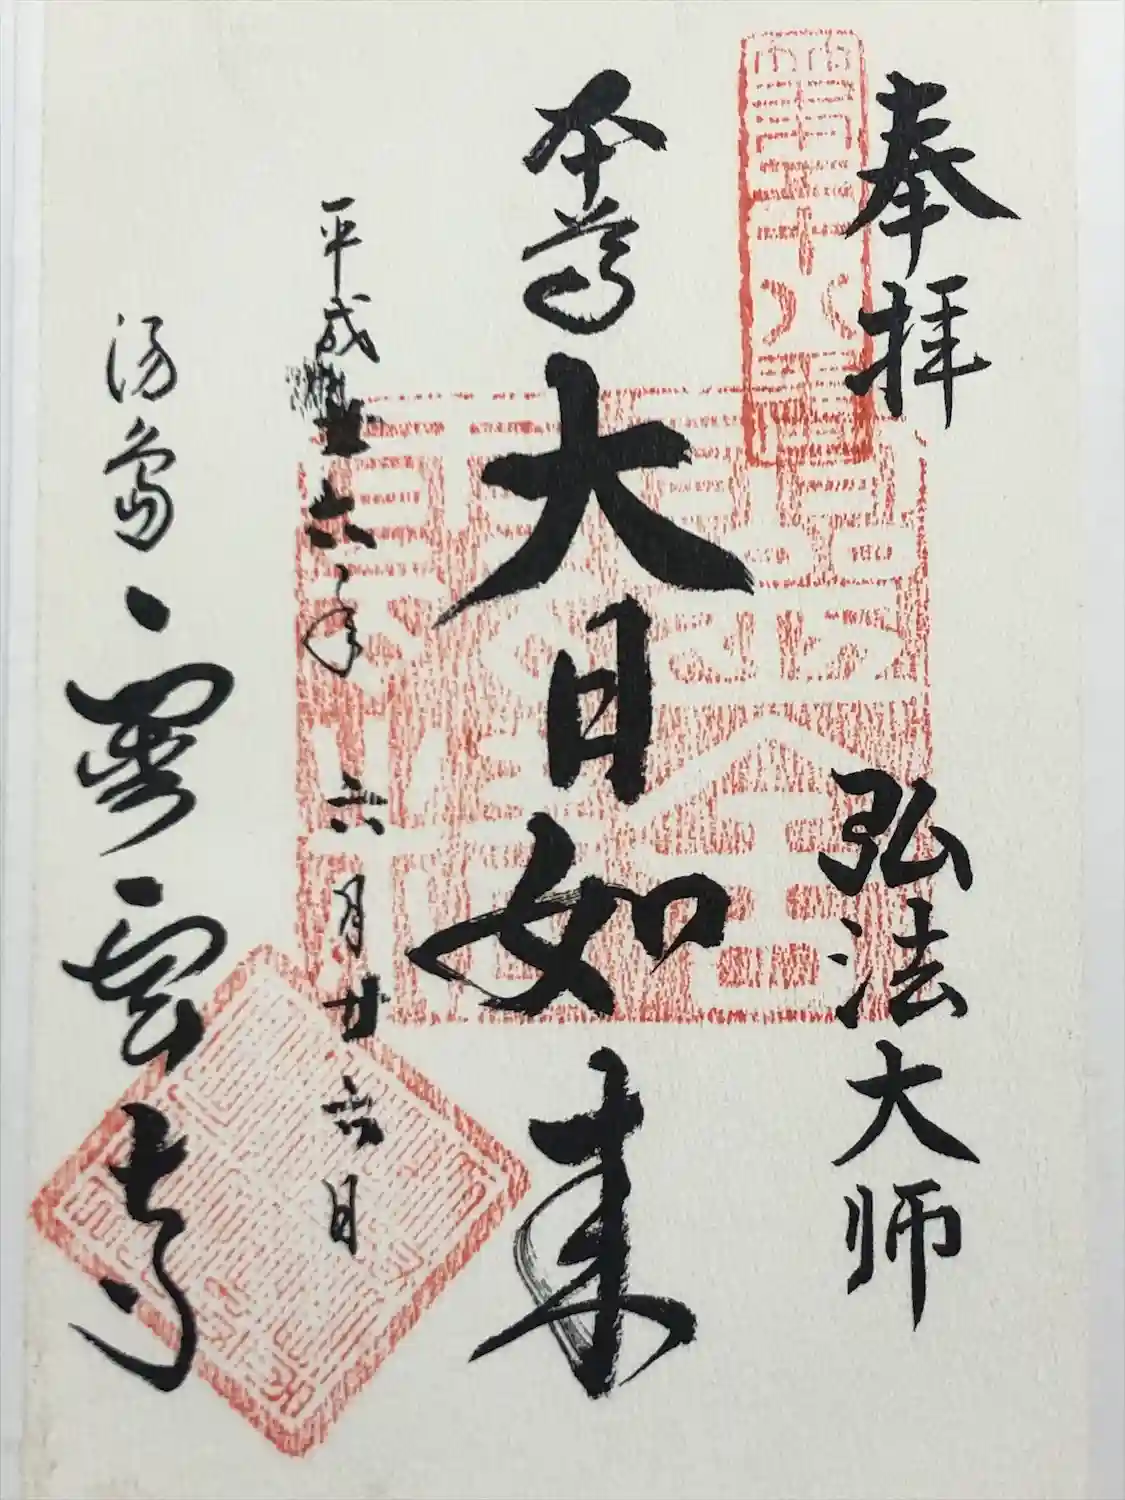 奉拝
弘法大師
本尊
大日如来
平成
六年
六月廿六日
湯島
霊雲寺